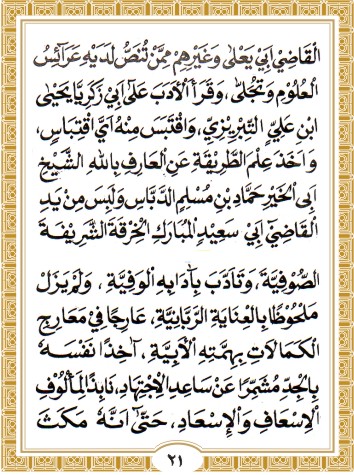 الْقَاضِيْ اَبِيْ يَعْلٰى وَغَيْرِهِمْ مِمَّنْ تُنَصُّ لَدَيْهِ عَرَائِسُ
الْعُلُوْمِ وَتُجَلّٰى، وَقَرَأَ الْاَدَبَ عَلٰى اَبِيْ زَكَرِيَّا يَحْيَى
ابْنِ عَلِيِّ التَّبْرِيْزِيْ، وَاقْتَبَسَ مِنْهُ اَيَّ اقْتِبَاسٍ،
وَاَخَذَ عِلْمَ الطَّرِيْقَةِ عَنِ الْعَارِفِ بِاللهِ الشَّيْخِ
اَبِى الْخَيْرِ حَمَّادِ بْنِ مُسْلِمِ الدَّبَّاسِ وَلَبِسَ مِنْ يَدِ
الْقَاضِيْ اَبِيْ سَعِيْدِ الْمُبَارَكِ الْخِرْقَةَ الشَّرِيْفَةَ
الصُّوْفِيَّةَ، وَتَاَدَّبَ بِاٰدَابِهِ الْوَفِيَّةِ، وَلَمْ يَزَلْ
مَلْحُوْظًا بِالْعِنَايَةِ الرَّبَّانِيَّةِ، عَارِجًا فِيْ مَعَارِجِ
الْكَمَالَاتِ بِهِمَّتِهِ الْاَبِيَّةِ، اٰخِذًا نَفْسَهُ
بِالْجِدِّ مُشَمِّرًا عَنْ سَاعِدِ الْاِجْتِهَادِ، نَابِذًا لِمَأْلُوْفِ
الْاِسْعَافِ وَالْاِسْعَادِ، حَتّٰى اَنَّهُ مَكَثَ
٢١